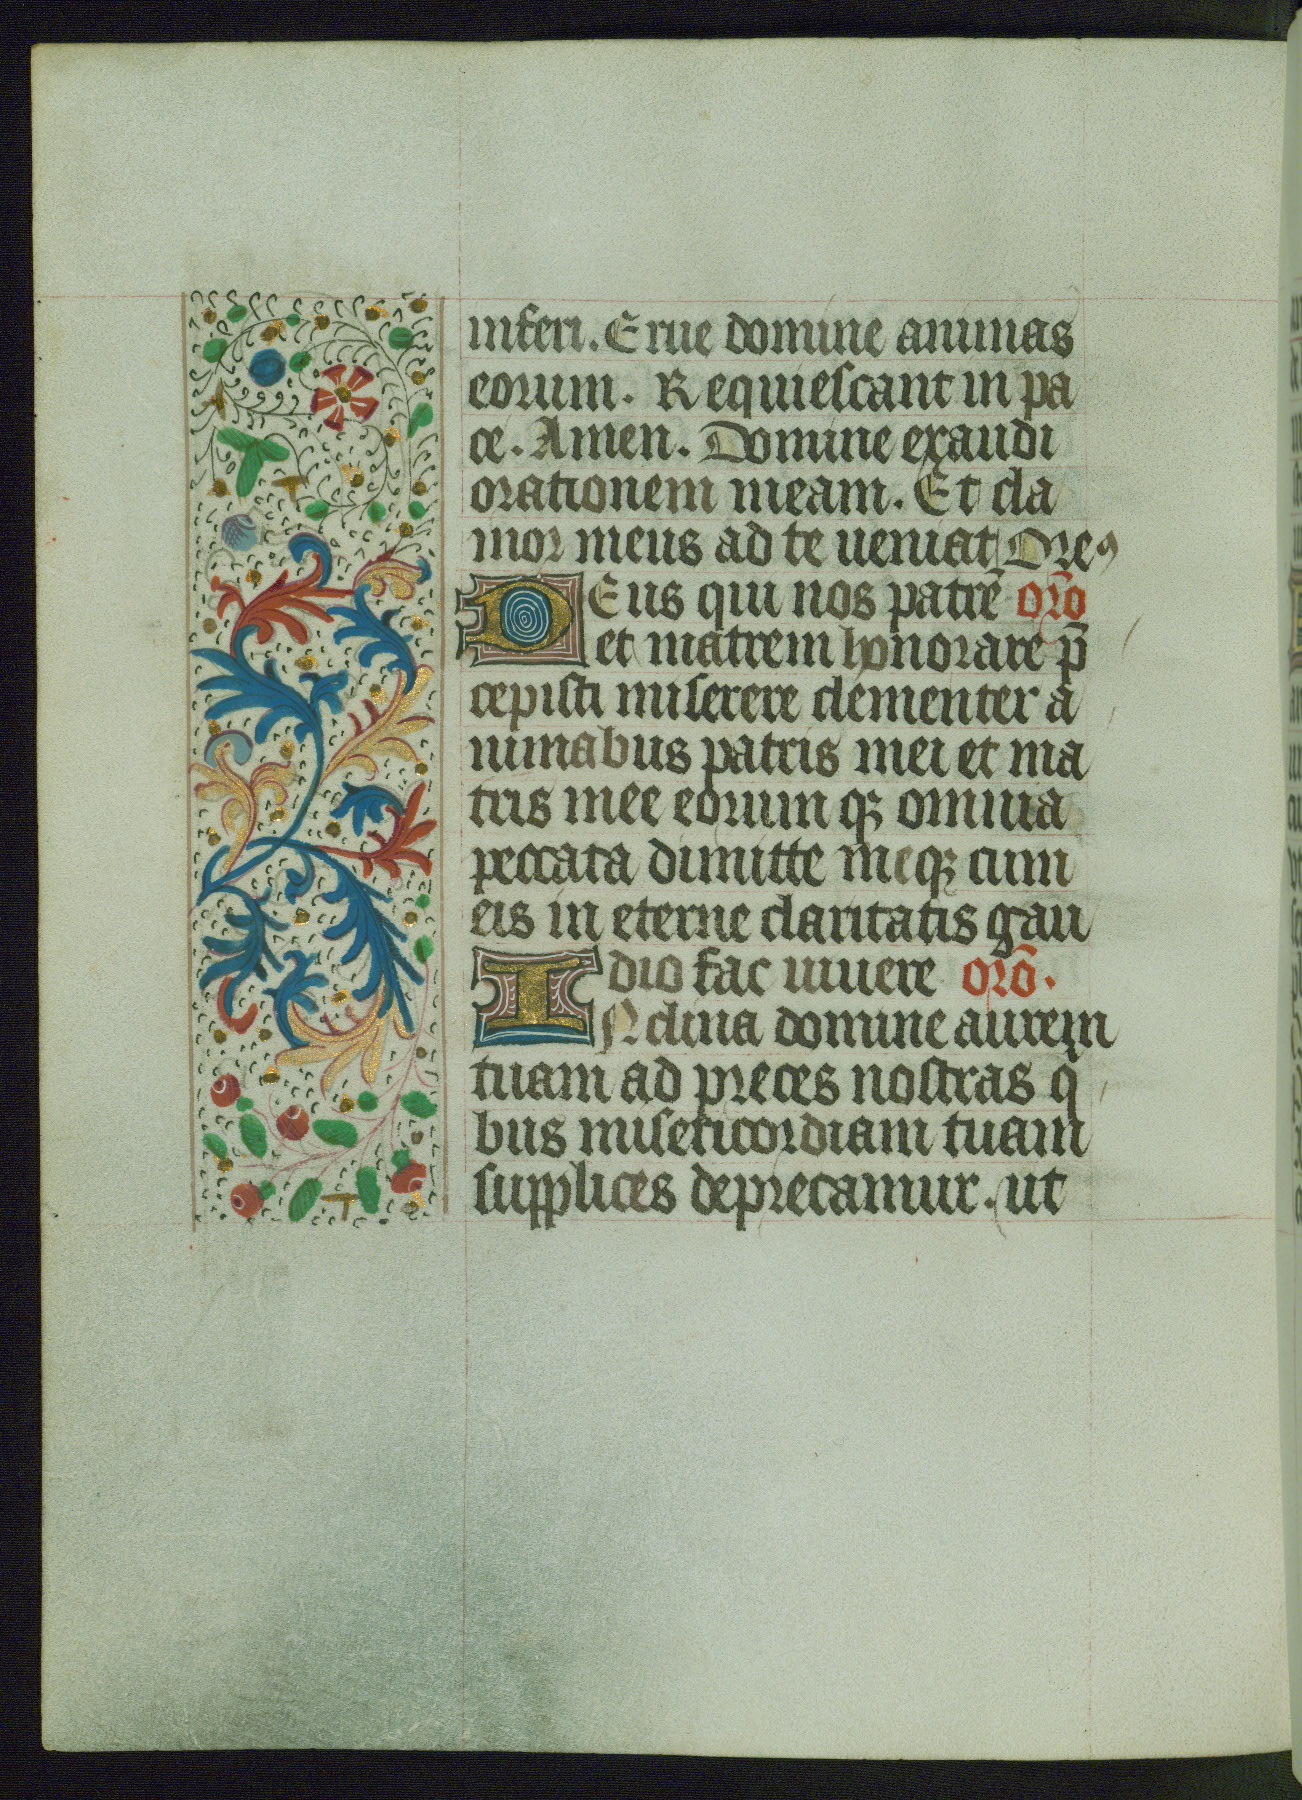 inferi. Erue domine animas
eorum. Requiescant in pa
ce. Amen. Domine exaudi
orationem meam. Et cla
mor meus ad te ueniat Orem9
DEus qui nos patrē orō
et matrem honorare p̄
cepisti miserere clementer a
nimabus patris mei et ma
tris mee eorum qꝫ omnia
peccata dimitte meqꝫ cum
eis in eterne claritatis gau
dio fac uiuere orō.
INclina domine aurem
tuam ad preces nostras q
bus misericordiam tuam
supplices deprecamur. ut